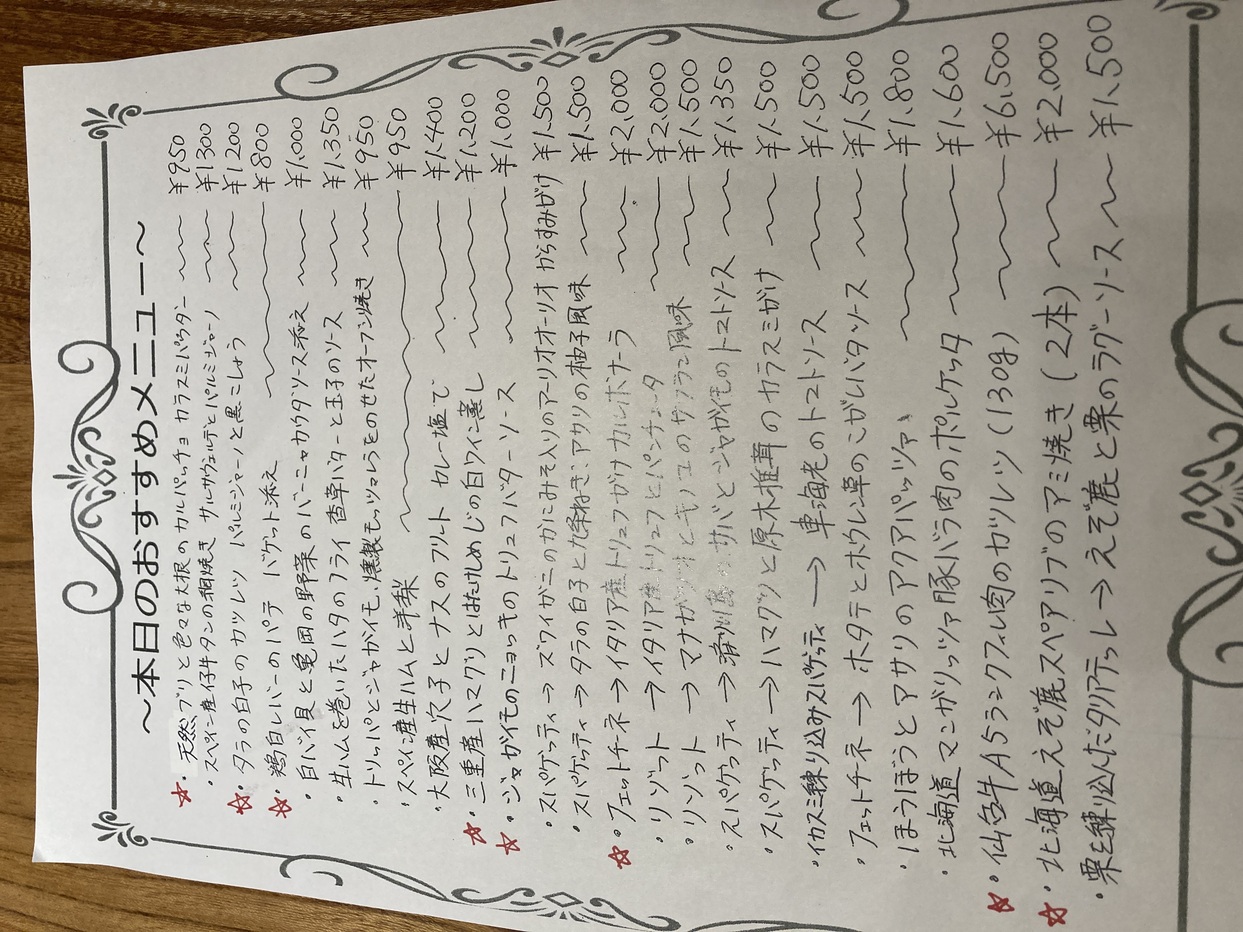 ～本日のおすすめメニュー～
☆・天然ブリと色々な大根のカルパッチョ カラスミパウダー ～～ ¥950
・スペイン産仔牛タンの網焼き サルサヴェルデとパルミジャーノ ～～ ¥1300
☆・タラの白子のカツレツ パルミジャーノと黒こしょう ～～ ¥1200
☆・鶏白レバーのパテ バゲット添え ～～ ¥800
・白バイ貝と亀岡の野菜のバーニャカウダソース添え ～～ ¥1,000
・生ハムを巻いたハタのフライ 香草バターと玉子のソース ～～ ¥1,350
・トリッパとジャガイモ、燻製モッツァレラをのせたオーブン焼き ～ ¥950
・スペイン産生ハムと洋梨 ～～ ¥950
・大阪産穴子とナスのフリット カレー塩で ～～ ¥1,400
☆・三重産ハマグリとはたけしめじの白ワイン蒸し ～～ ¥1,200
☆・ジャガイモのニョッキのトリュフバターソース ～～ ¥1,000
・スパゲッティ→ズワイガニのかにみそ入りのアーリオオーリオ からすみがけ ¥1,500
・スパゲッティ→タラの白子と九条ねぎ、アサリの柚子風味 ～～ ¥1,500
☆・フェットチネ→イタリア産トリュフがけカルボナーラ ～～ ¥2,000
・リゾット→イタリア産トリュフとパンチェッタ ～～ ¥2,000
・リゾット→マナガツオとキノコのサフラン風味 ～～ ¥1,500
・スパゲッティ→サバとジャガイモのトマトソース ～～ ¥1,350
・スパゲッティ→ハマグリと原木椎茸のカラスミがけ ～～ ¥1,500
・イカスミ練り込みスパゲッティ→車海老のトマトソース ～～ ¥1,500
・フェットチネ→ホタテとホウレン草のこがしバタソース ～～ ¥1,500
・ほうぼうとアサリのアクアパッツァ ～～ ¥1,800
・北海道マンガリッツァ豚バラ肉のポルケッタ ～～ ¥1,600
☆・仙台牛A5ランクフィレ肉のカツレツ(130g) ～～ ¥6,500
☆・北海道えぞ鹿スペアリブのアミ焼き(2本) ～～ ¥2,000
・栗を練り込んだタリアテッレ→えぞ鹿と栗のラグーソース ～ ¥1,500